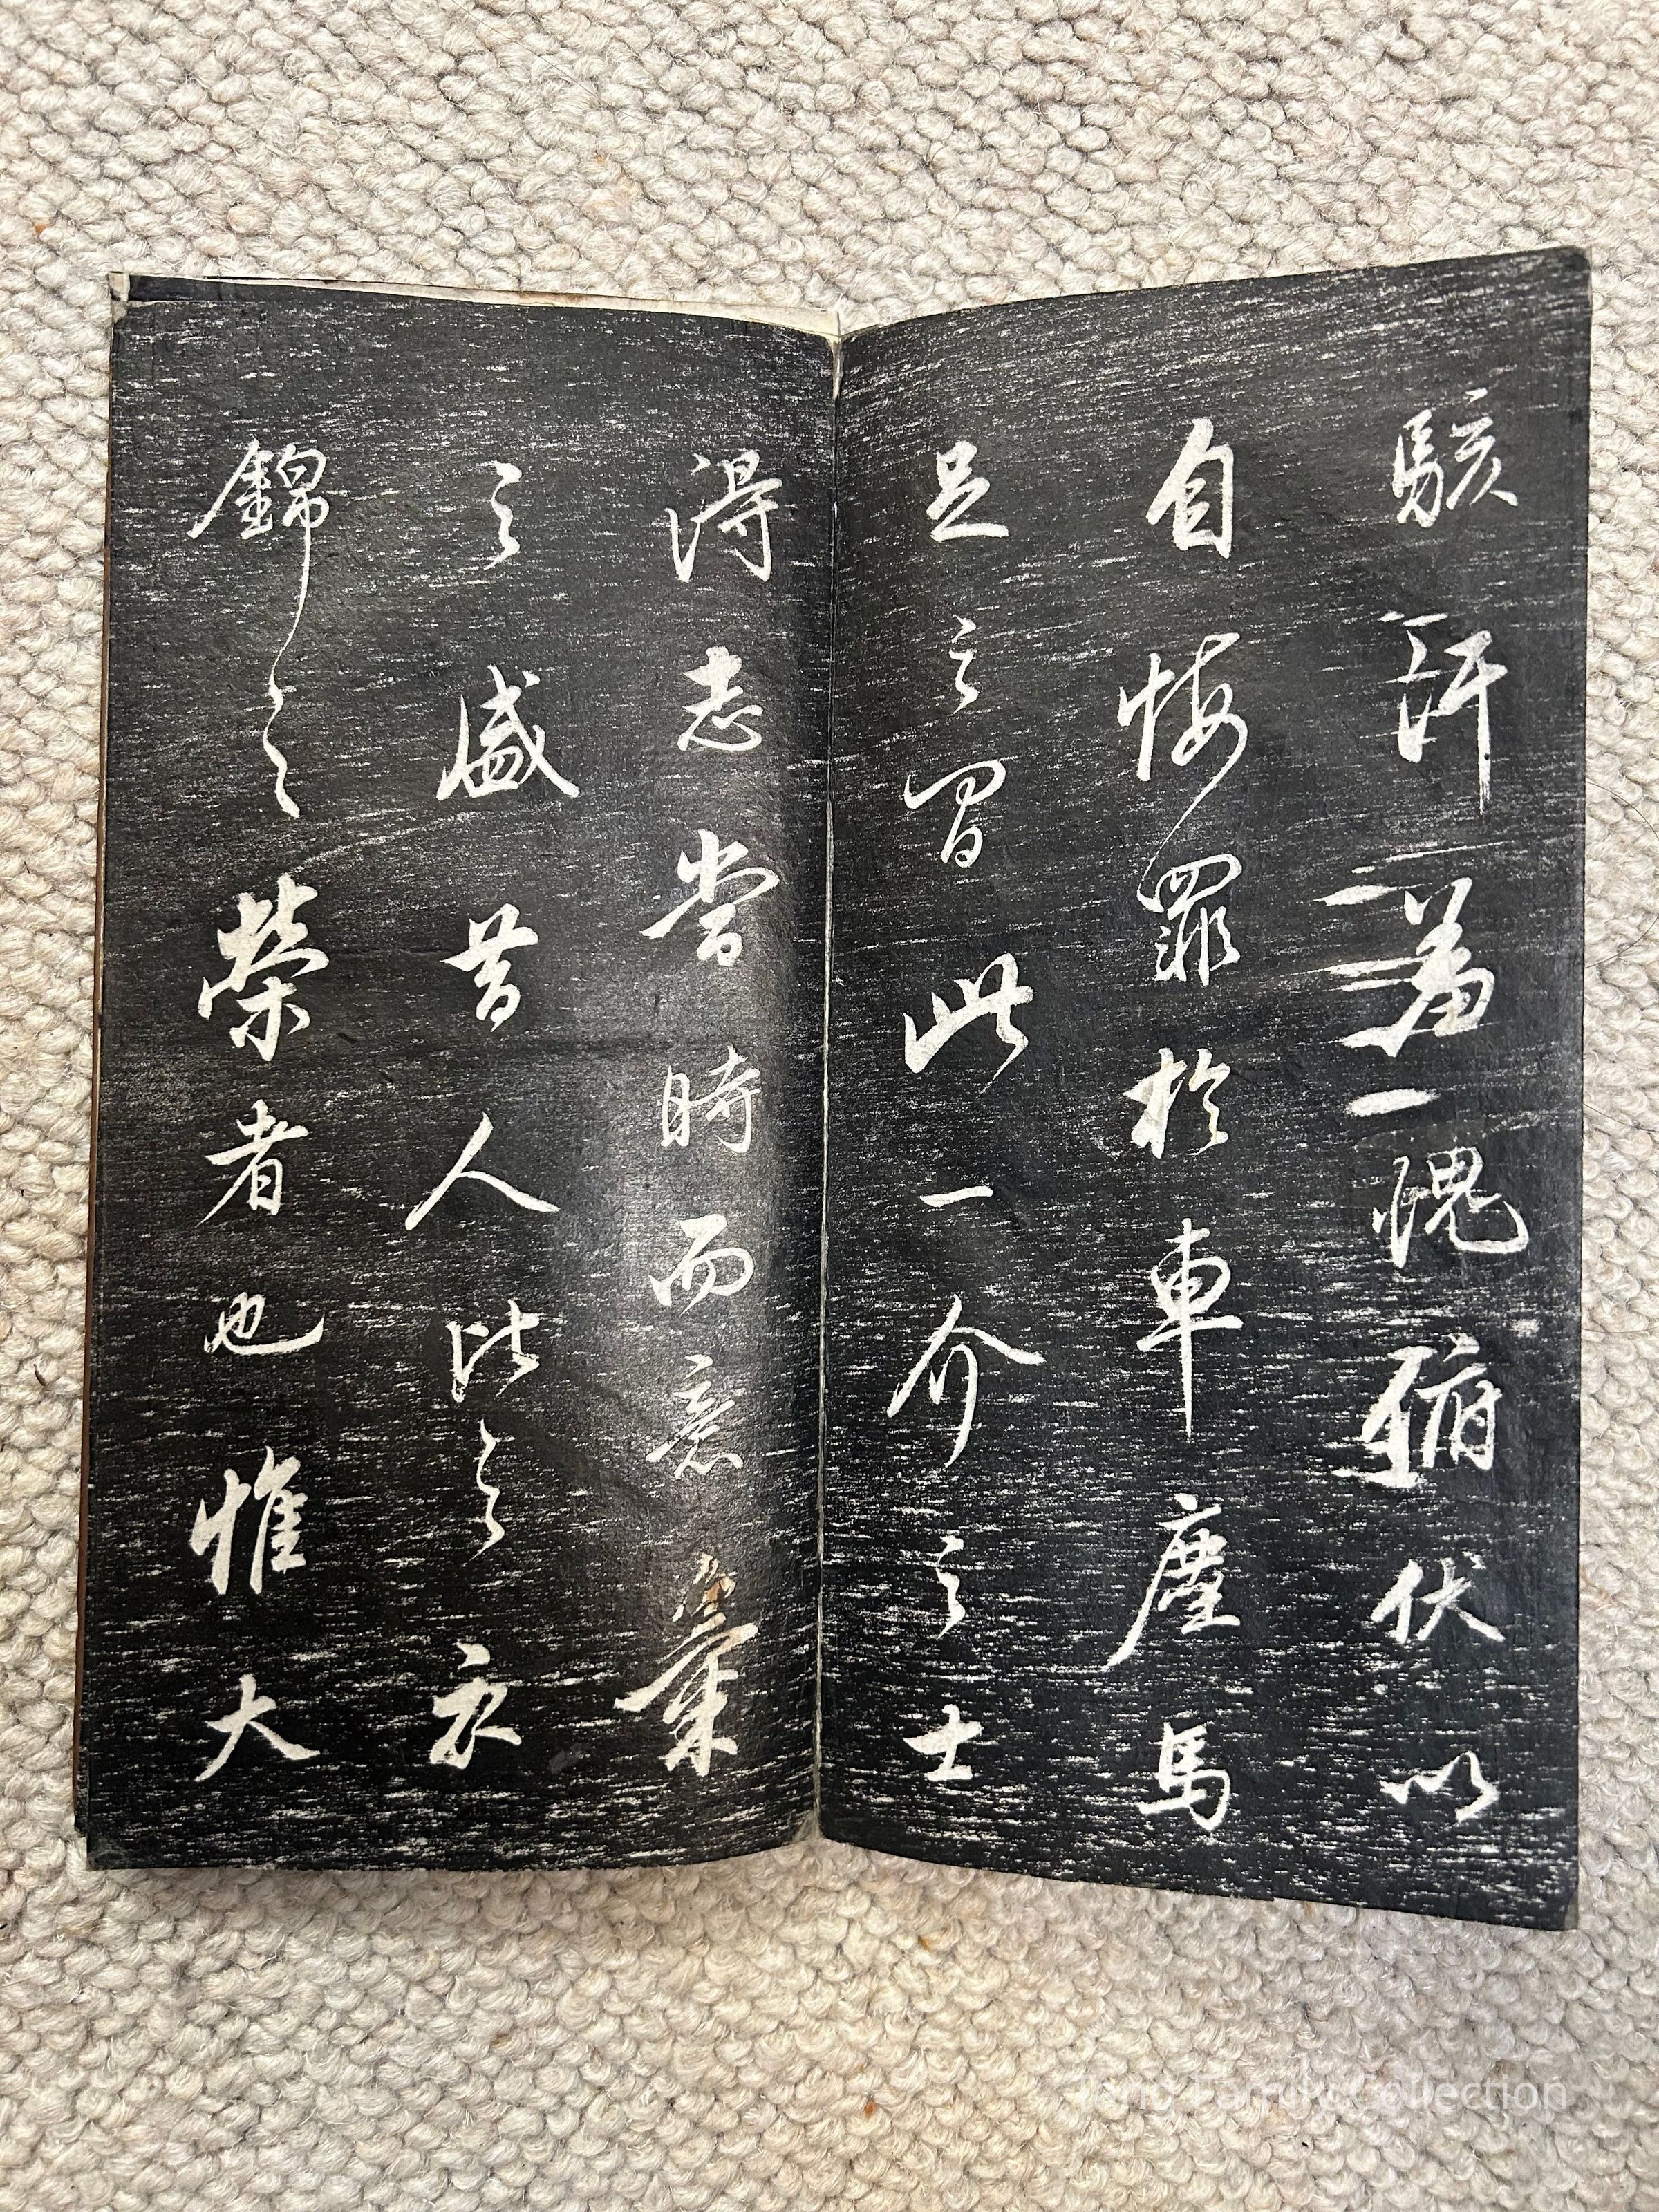 駭汗羞愧俯伏以
自悔罪於車塵馬
足之間此一介之士
得志當時而意氣
之盛昔人比之衣
錦之榮者也惟大
Family Collection